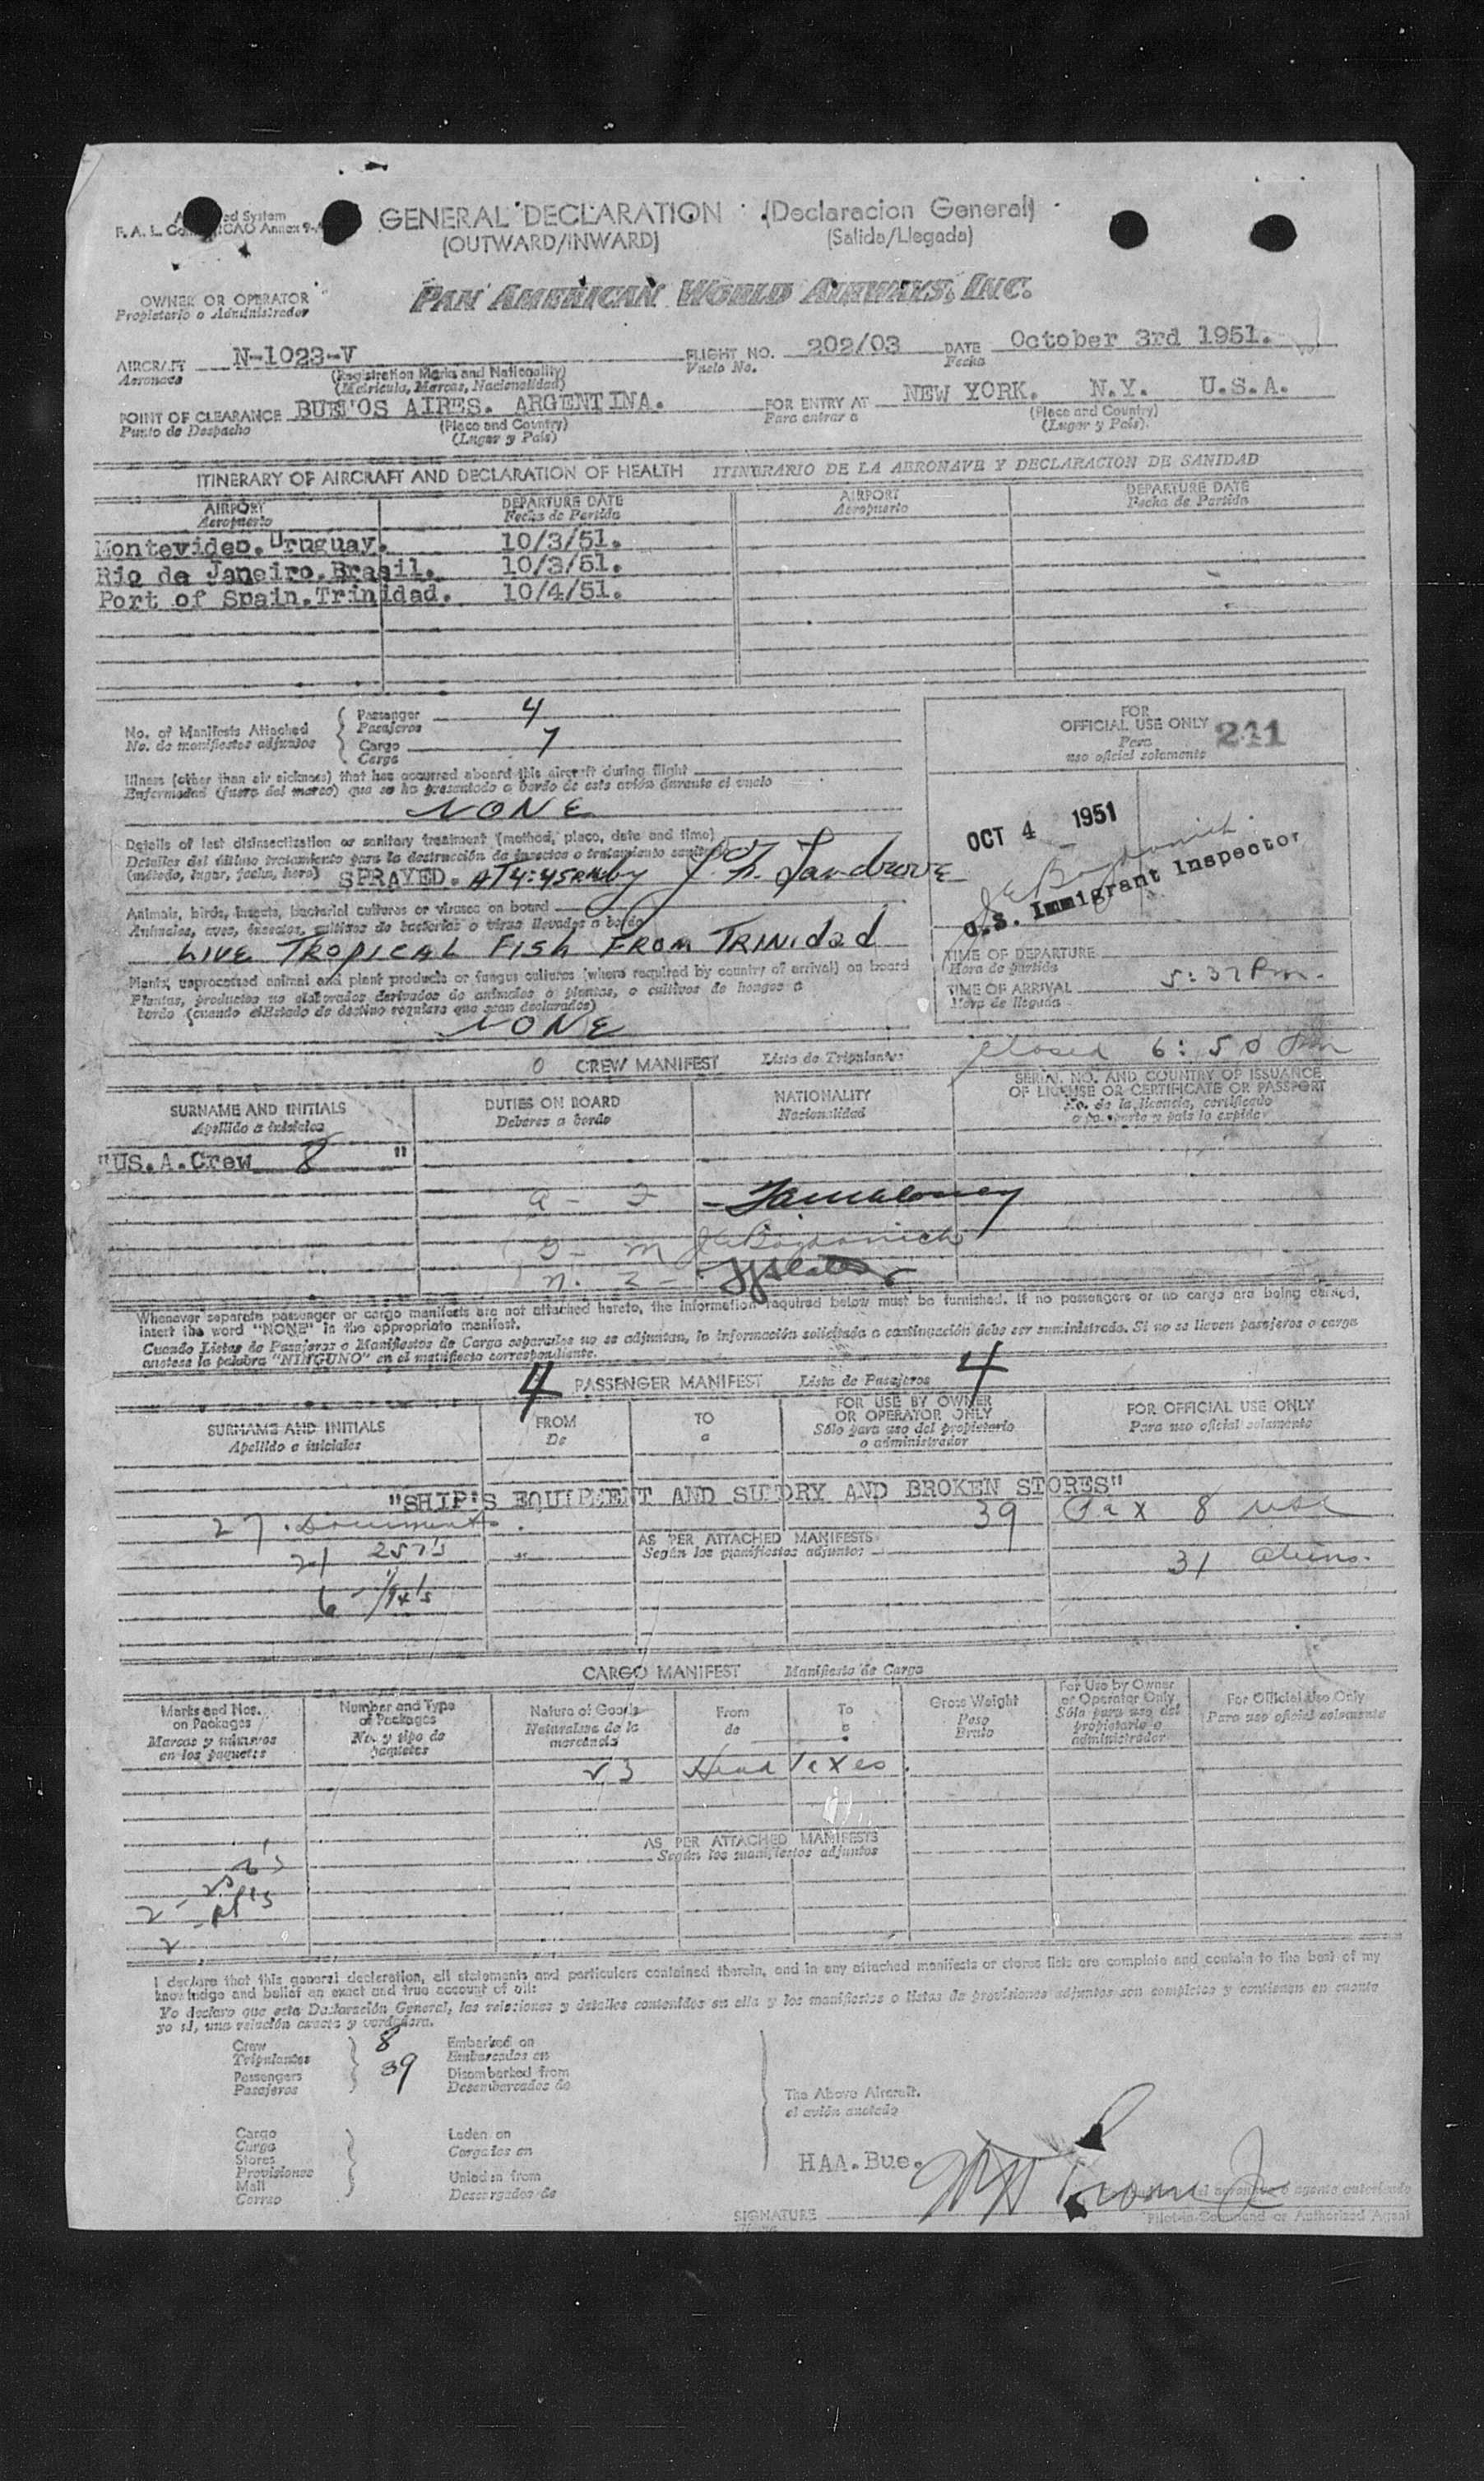 GENERAL DECLARATION (Declaracion General)
(OUTWARD/INWARD) (Salida/Llegada)
OWNER OR OPERATOR
Propietario o Administrador
PAN AMERICAN WORLD AIRWAYS, INC.
AIRCRAFT N-1023-V FLIGHT NO. 202/03 DATE October 3rd 1951.
Aeronave (Registration Marks and Nationality) Vuelo No. Fecha
(Matricula, Marcas, Nacionalidad)
POINT OF CLEARANCE BUENOS AIRES. ARGENTINA. FOR ENTRY AT NEW YORK. N.Y. U.S.A.
Punto de Despacho (Place and Country) Para entrar a (Place and Country)
(Lugar y País) (Lugar y País).
ITINERARY OF AIRCRAFT AND DECLARATION OF HEALTH ITINERARIO DE LA AERONAVE Y DECLARACION DE SANIDAD
AIRPORT DEPARTURE DATE AIRPORT DEPARTURE DATE
Aeropuerto Fecha de Partida Aeropuerto Fecha de Partida
Montevideo.Uruguay. 10/3/51.
Rio de Janeiro.Brasil. 10/3/51.
Port of Spain.Trinidad. 10/4/51.
No. of Manifests Attached Passenger 4
No. de manifiestos adjuntos Pasajeros
Cargo 7
Carga
FOR
OFFICIAL USE ONLY 241
Para
uso oficial solamente
Illness (other than air sickness) that has occurred aboard this aircraft during flight
Enfermedad (fuera del mareo) que se ha presentado a bordo de este avión durante el vuelo
NONE
OCT 4 1951
U.S. Immigrant Inspector
Details of last disinsectization or sanitary treatment (method, place, date and time)
Detalles del último tratamiento para la destrucción de insectos o tratamiento sanitario
(método, lugar, fecha, hora) SPRAYED. AT 4:45 PM by
Animals, birds, insects, bacterial cultures or viruses on board
Animales, aves, insectos, cultivos de bacterias o virus llevados a bordo
LIVE TROPICAL FISH FROM TRINIDAD
Plants, unprocessed animal and plant products or fungus cultures (where required by country of arrival) on board
Plantas, productos no elaborados derivados de animales o plantas, o cultivos de hongos a
bordo (cuando el Estado de destino requiera que sean declarados)
NONE
TIME OF DEPARTURE
Hora de partida
TIME OF ARRIVAL 5:37 Pm.
Hora de llegada
Closed 6:50 Pm
CREW MANIFEST Lista de Tripulantes
SURNAME AND INITIALS DUTIES ON BOARD NATIONALITY SERIAL NO. AND COUNTRY OF ISSUANCE
OF LICENSE OR CERTIFICATE OR PASSPORT
Apellido e iniciales Deberes a bordo Nacionalidad No. de la licencia, certificado
o pasaporte y país lo expide
"US.A.Crew 8 "
Whenever separate passenger or cargo manifests are not attached hereto, the information required below must be furnished. If no passengers or no cargo are being carried,
insert the word "NONE" in the appropriate manifest.
Cuando Listas de Pasajeros o Manifiestos de Carga separadas no se adjuntan, la información solicitada a continuación debe ser suministrada. Si no se llevan pasajeros o carga
anotese la palabra "NINGUNO" en el manifiesto correspondiente.
4 PASSENGER MANIFEST Lista de Pasajeros 4
SURNAME AND INITIALS FROM TO FOR USE BY OWNER
OR OPERATOR ONLY FOR OFFICIAL USE ONLY
Apellido e iniciales De a Sólo para uso del propietario
o administrador Para uso oficial solamente
"SHIP'S EQUIPMENT AND SUNDRY AND BROKEN STORES"
27 Documents. 39 Pax 8 USC
21 257's AS PER ATTACHED MANIFESTS 31 aliens.
Según los manifiestos adjuntos
CARGO MANIFEST Manifiesto de Carga
Marks and Nos.
on Packages
Marcas y números
en los paquetes
Number and Type
of Packages
No. y tipo de
paquetes
Nature of Goods
Naturalesa de la
mercancia
From
de
To
a
Gross Weight
Peso
Bruto
For Use by Owner
or Operator Only
Sólo para uso del
propietario o
administrador
For Official Use Only
Para uso oficial solamente
23 Head Taxes
AS PER ATTACHED MANIFESTS
Según los manifiestos adjuntos
I declare that this general declaration, all statements and particulars contained therein, and in any attached manifests or stores lists are complete and contain to the best of my
knowledge and belief an exact and true account of all:
Yo declaro que esta Declaración General, las relaciones y detalles contenidos en ella y los manifiestos o listas de provisiones adjuntos son completos y contienen en cuanto
yo sé, una relación exacta y verdadera.
Crew 8 Embarked on
Tripulantes Embarcados en
Passengers 39 Disembarked from
Pasajeros Desembarcados de
The Above Aircraft.
el avión anotado
Cargo Laden on
Carga Cargados en
Stores
Provisiones
Mail Unladen from
Correo Descargados de
HAA.Bue.
SIGNATURE
Pilot-in-Command or Authorized Agent